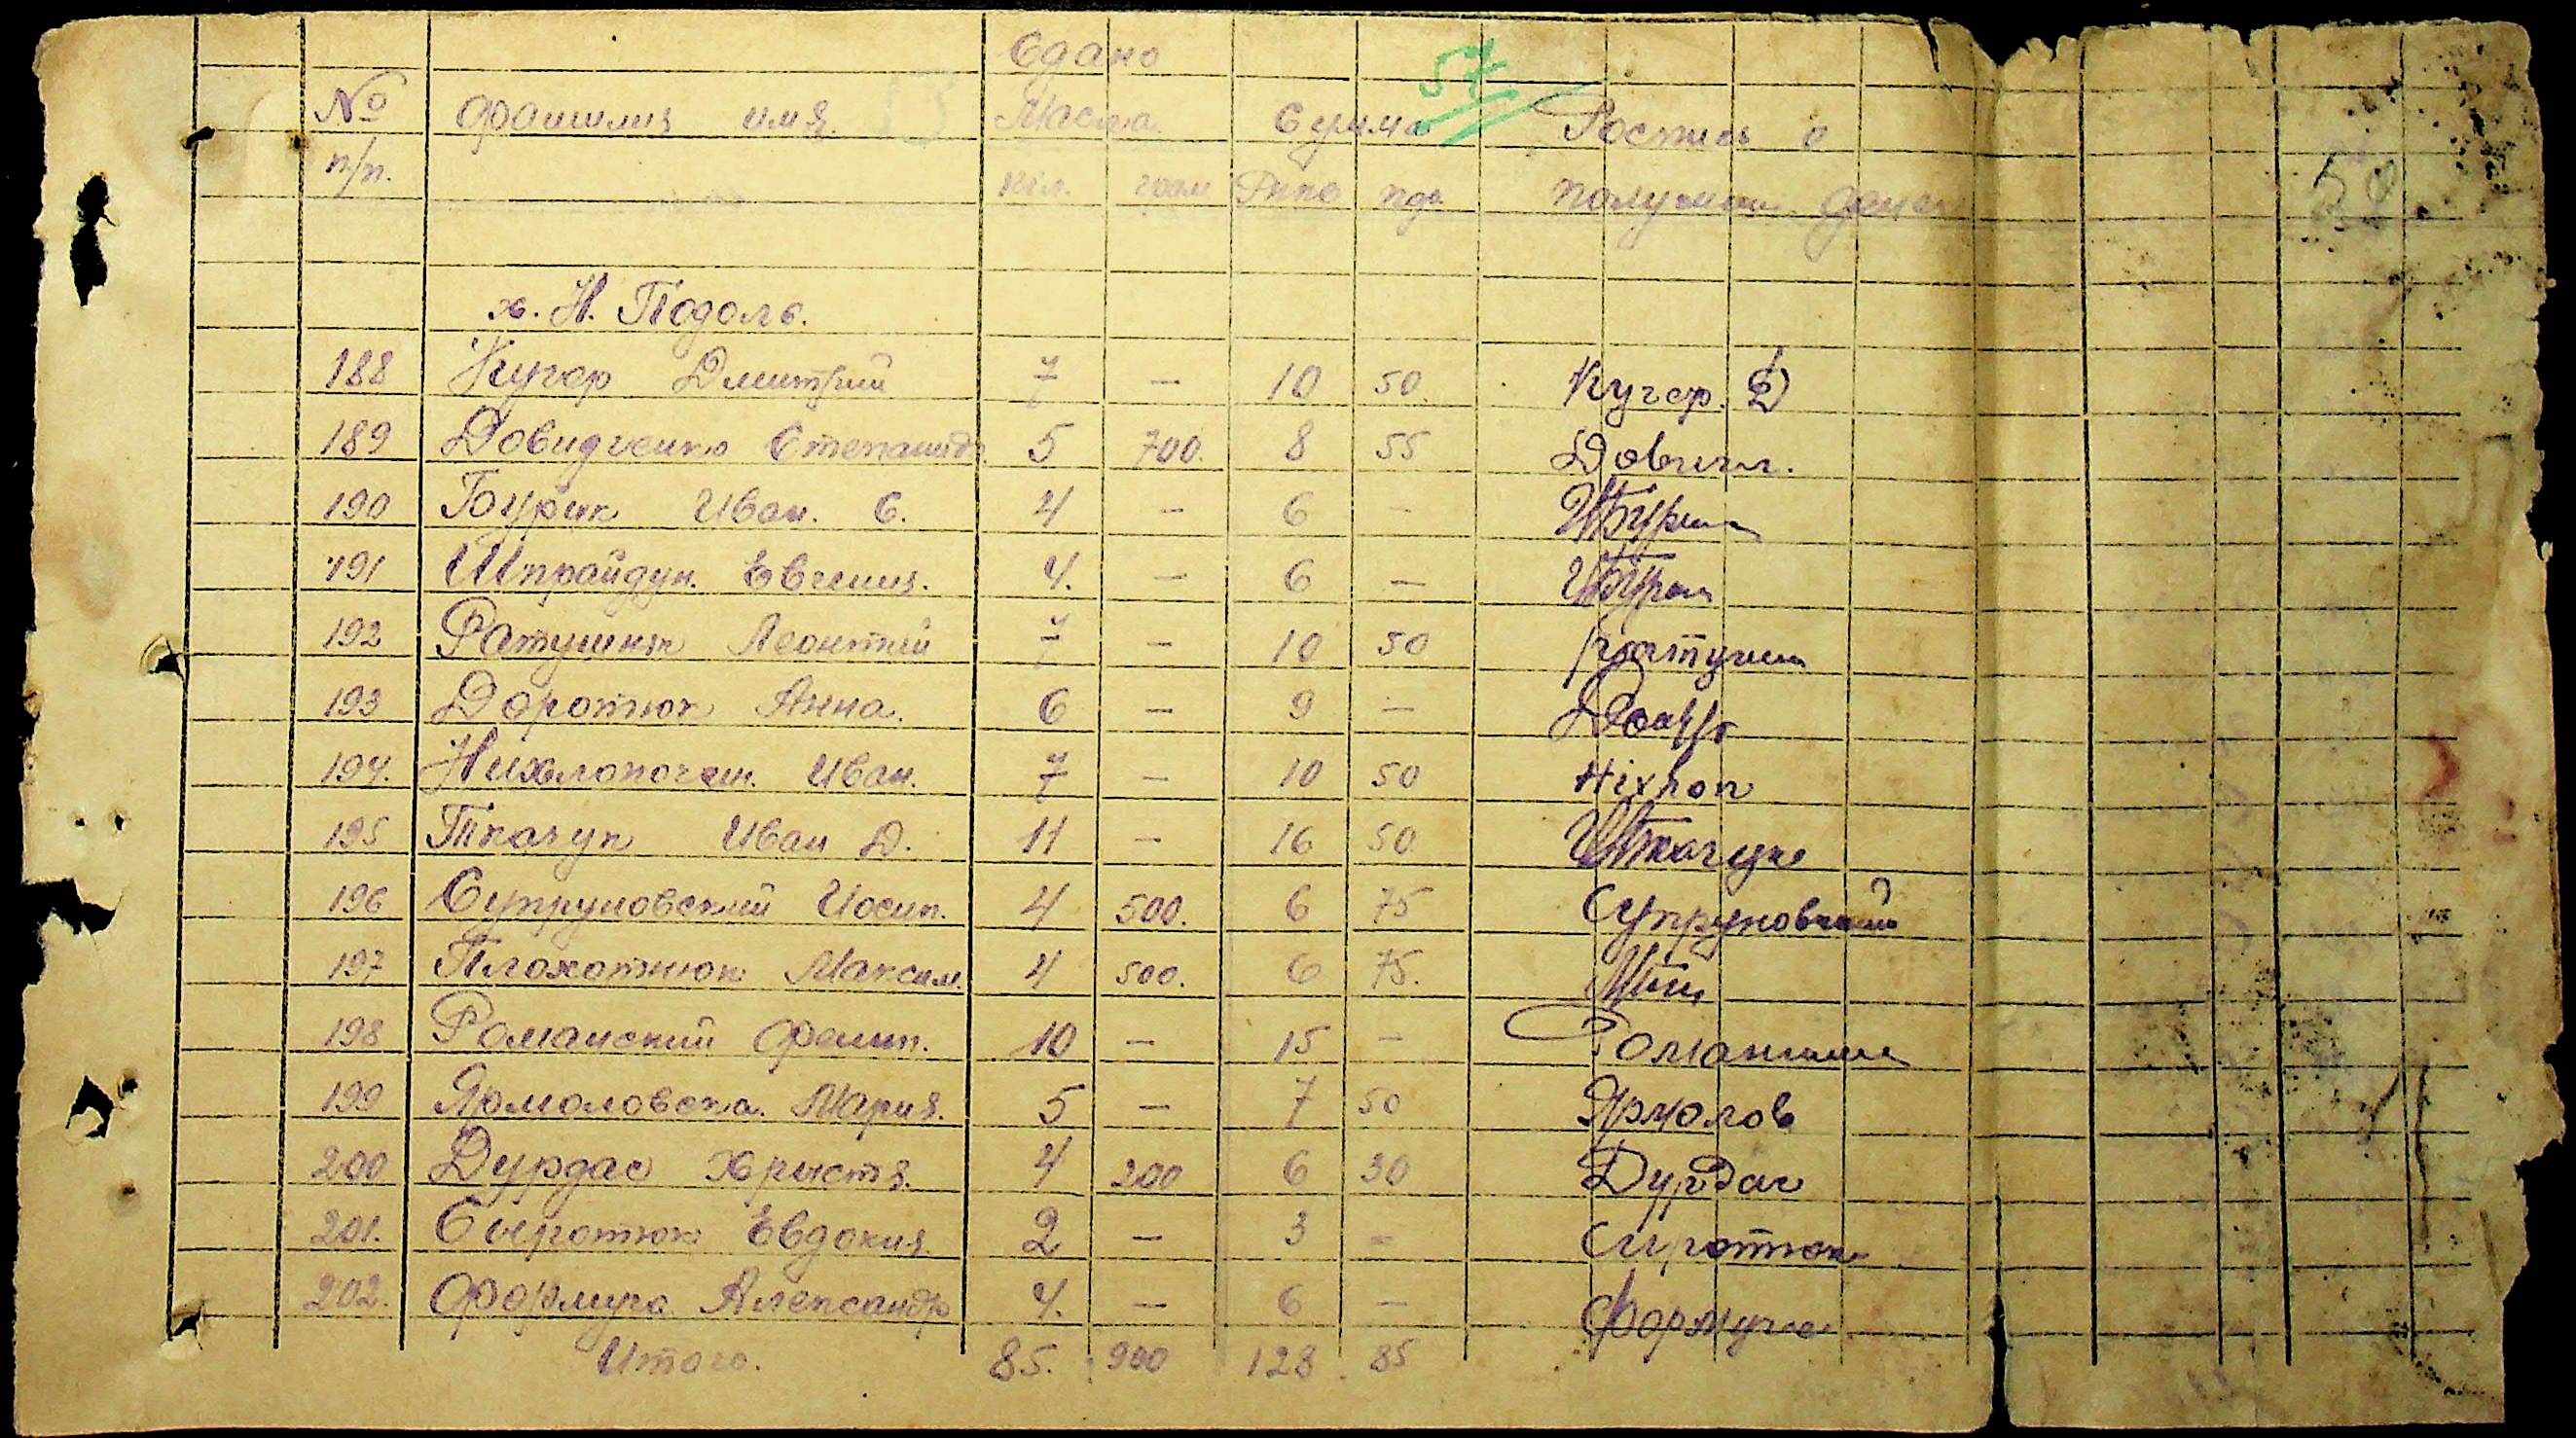 57
Сдано
№ Фамилия имя. Масла Сумма Роспись о
п/п. кгл. грам Рипо пфе. получении денег
50
х. Н. Подоль.
188 Кучер Дмитрий 7 — 10 50. Кучер. Д
189 Довидченко Степанида 5 700. 8 55
190 Бурик Иван. С. 4 — 6 — ИБурик
191 Шпрайдун. Евгения. 4. — 6 —
192 Ратушняк Леонтий 7 — 10 50 Ратушн
193 Доротюк Анна. 6 — 9 —
194. Нихлопочен. Иван. 7 — 10 50 Ніхлоп
195 Ткачук Иван Д. 11 — 16 50 ИТкачук
196 Супруновский Иосип. 4 500. 6 75 Супруновский
197 Плохотнюк Максим. 4 500. 6 75.
198 Романский Филип. 10 — 15 — Романский
199 Ярмоловска. Мария. 5 — 7 50 Ярмолов
200 Дурдас Христя. 4 200 6 30 Дурдас
201. Сыротюк Евдокия 2 — 3 — Сиротюк
202. Формуга Александр 4. — 6 — Формуга
Итого. 85. 900 128. 85